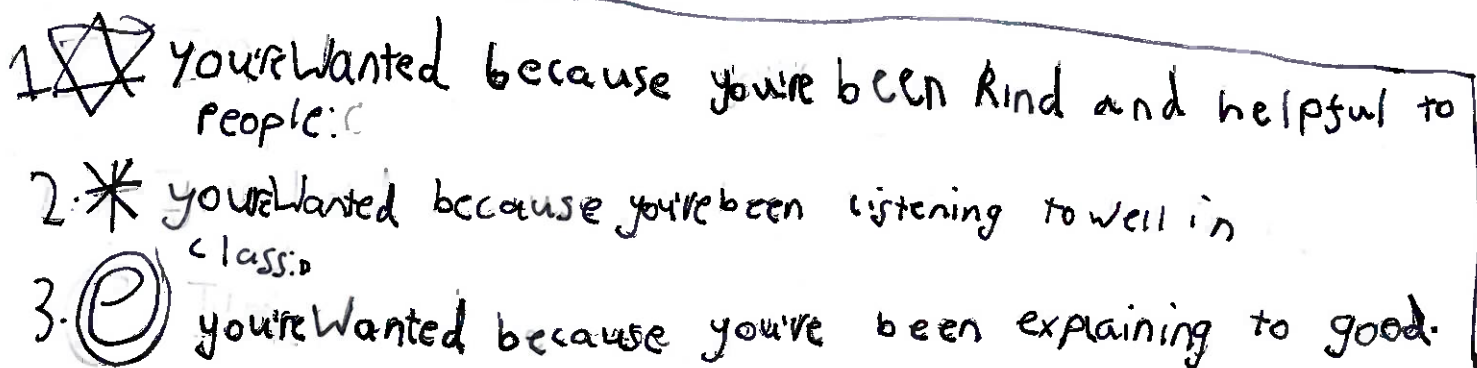 1. you're Wanted because you're been kind and helpful to
people:C
2. you're Wanted because you've been listening to well in
class:D
3. e you're Wanted because you've been explaining to good.